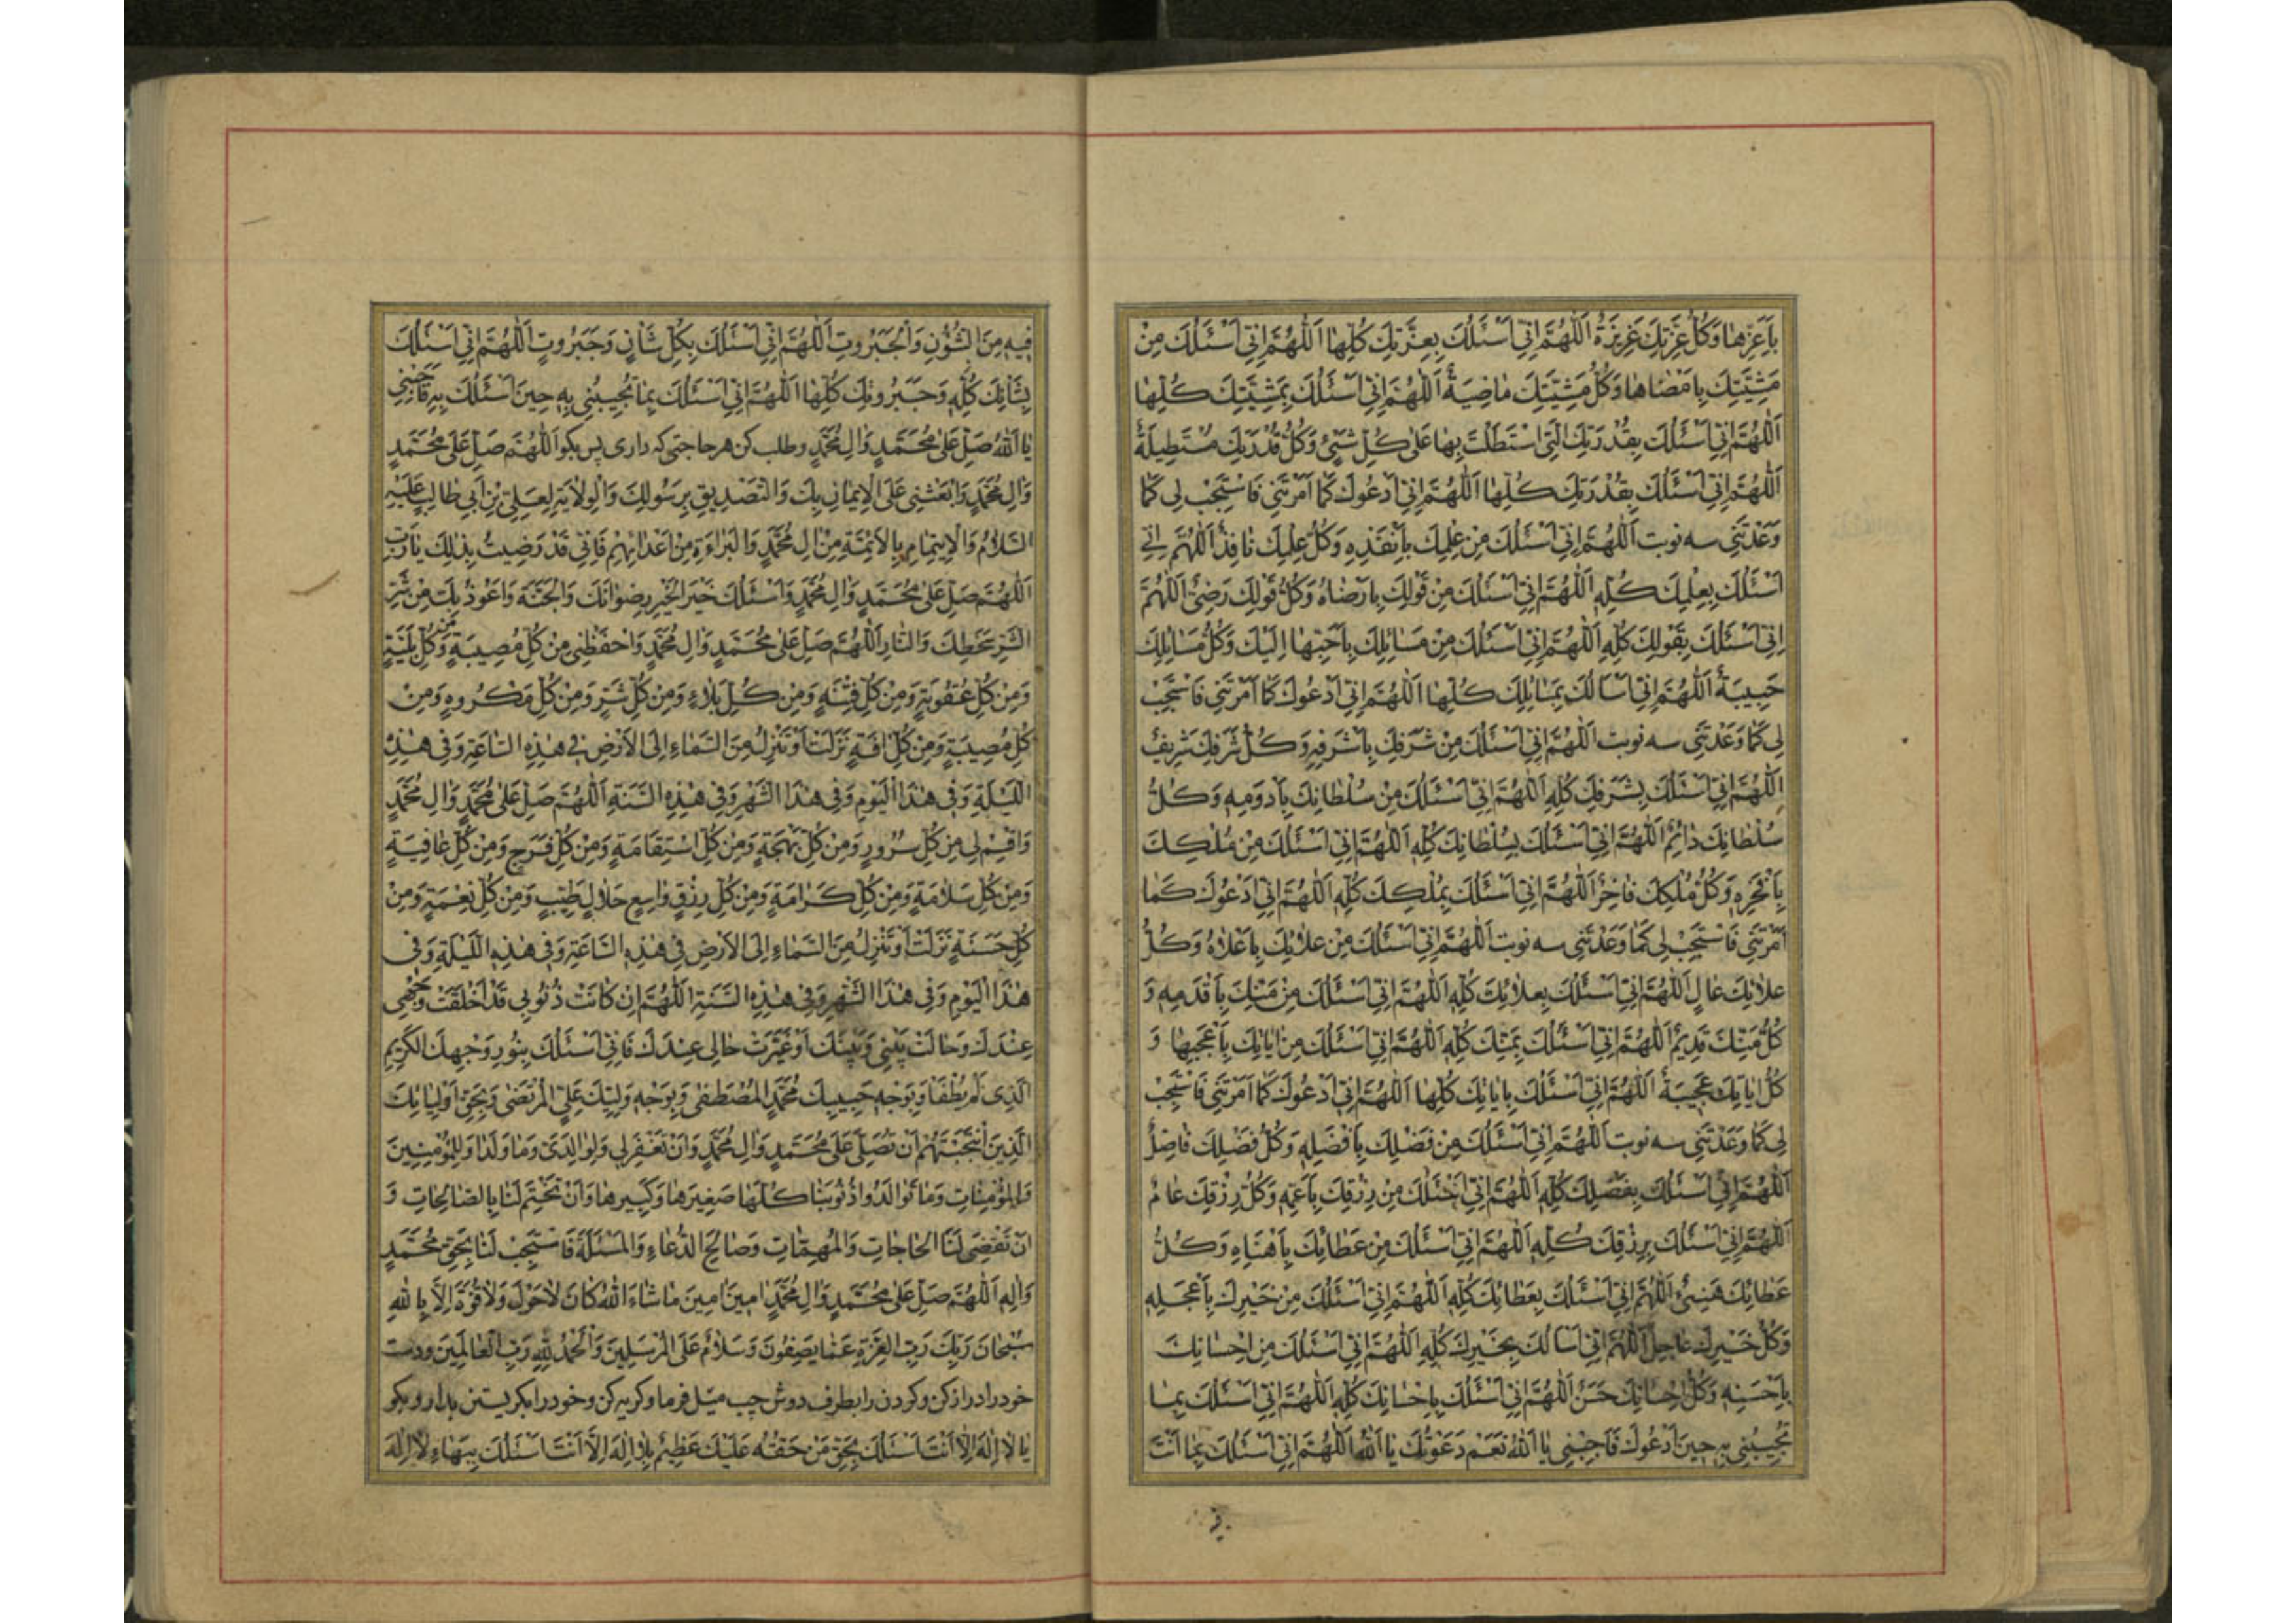 بِاَعَزِّها وَكُلُّ عِزَّتِكَ عَزيزَةٌ اَللّٰهُمَّ اِنّى اَسْئَلُكَ بِعِزَّتِكَ كُلِّها اَللّٰهُمَّ اِنّى اَسْئَلُكَ مِنْ
مَشِيَّتِكَ بِاَمْضاها وَكُلُّ مَشِيَّتِكَ ماضِيَةٌ اَللّٰهُمَّ اِنّى اَسْئَلُكَ بِمَشِيَّتِكَ كُلِّها
اَللّٰهُمَّ اِنّى اَسْئَلُكَ بِقُدْرَتِكَ الَّتى اسْتَطَلْتَ بِها عَلىٰ كُلِّ شَىْءٍ وَكُلُّ قُدْرَتِكَ مُسْتَطيلَةٌ
اَللّٰهُمَّ اِنّى اَسْئَلُكَ بِقُدْرَتِكَ كُلِّها اَللّٰهُمَّ اِنّى اَدْعُوكَ كَما اَمَرْتَنى فَاسْتَجِبْ لى كَما
وَعَدْتَنى سه نوبت اَللّٰهُمَّ اِنّى اَسْئَلُكَ مِنْ عِلْمِكَ بِاَنْفَذِهِ وَكُلُّ عِلْمِكَ نافِذٌ اَللّٰهُمَّ اِنّى
اَسْئَلُكَ بِعِلْمِكَ كُلِّهِ اَللّٰهُمَّ اِنّى اَسْئَلُكَ مِنْ قَوْلِكَ بِاَرْضاهُ وَكُلُّ قَوْلِكَ رَضِىٌّ اَللّٰهُمَّ
اِنّى اَسْئَلُكَ بِقَوْلِكَ كُلِّهِ اَللّٰهُمَّ اِنّى اَسْئَلُكَ مِنْ مَسائِلِكَ بِاَحَبِّها اِلَيْكَ وَكُلُّ مَسائِلِكَ
حَبيبَةٌ اَللّٰهُمَّ اِنّى اَسْاَلُكَ بِمَسائِلِكَ كُلِّها اَللّٰهُمَّ اِنّى اَدْعُوكَ كَما اَمَرْتَنى فَاسْتَجِبْ
لى كَما وَعَدْتَنى سه نوبت اَللّٰهُمَّ اِنّى اَسْئَلُكَ مِنْ شَرَفِكَ بِاَشْرَفِهِ وَكُلُّ شَرَفِكَ شَريفٌ
اَللّٰهُمَّ اِنّى اَسْئَلُكَ بِشَرَفِكَ كُلِّهِ اَللّٰهُمَّ اِنّى اَسْئَلُكَ مِنْ سُلْطانِكَ بِاَدْوَمِهِ وَكُلُّ
سُلْطانِكَ دائِمٌ اَللّٰهُمَّ اِنّى اَسْئَلُكَ بِسُلْطانِكَ كُلِّهِ اَللّٰهُمَّ اِنّى اَسْئَلُكَ مِنْ مُلْكِكَ
بِاَفْخَرِهِ وَكُلُّ مُلْكِكَ فاخِرٌ اَللّٰهُمَّ اِنّى اَسْئَلُكَ بِمُلْكِكَ كُلِّهِ اَللّٰهُمَّ اِنّى اَدْعُوكَ كَما
اَمَرْتَنى فَاسْتَجِبْ لى كَما وَعَدْتَنى سه نوبت اَللّٰهُمَّ اِنّى اَسْئَلُكَ مِنْ عَلائِكَ بِاَعْلاهُ وَكُلُّ
عَلائِكَ عالٍ اَللّٰهُمَّ اِنّى اَسْئَلُكَ بِعَلائِكَ كُلِّهِ اَللّٰهُمَّ اِنّى اَسْئَلُكَ مِنْ مَنِّكَ بِاَقْدَمِهِ وَ
كُلُّ مَنِّكَ قَديمٌ اَللّٰهُمَّ اِنّى اَسْئَلُكَ بِمَنِّكَ كُلِّهِ اَللّٰهُمَّ اِنّى اَسْئَلُكَ مِنْ اٰياتِكَ بِاَعْجَبِها وَ
كُلُّ اٰياتِكَ عَجيبَةٌ اَللّٰهُمَّ اِنّى اَسْئَلُكَ بِاٰياتِكَ كُلِّها اَللّٰهُمَّ اِنّى اَدْعُوكَ كَما اَمَرْتَنى فَاسْتَجِبْ
لى كَما وَعَدْتَنى سه نوبت اَللّٰهُمَّ اِنّى اَسْئَلُكَ مِنْ فَضْلِكَ بِاَفْضَلِهِ وَكُلُّ فَضْلِكَ فاضِلٌ
اَللّٰهُمَّ اِنّى اَسْئَلُكَ بِفَضْلِكَ كُلِّهِ اَللّٰهُمَّ اِنّى اَسْئَلُكَ مِنْ رِزْقِكَ بِاَعَمِّهِ وَكُلُّ رِزْقِكَ عامٌ
اَللّٰهُمَّ اِنّى اَسْئَلُكَ بِرِزْقِكَ كُلِّهِ اَللّٰهُمَّ اِنّى اَسْئَلُكَ مِنْ عَطائِكَ بِاَهْنَاِهِ وَكُلُّ
عَطائِكَ هَنِىءٌ اَللّٰهُمَّ اِنّى اَسْئَلُكَ بِعَطائِكَ كُلِّهِ اَللّٰهُمَّ اِنّى اَسْئَلُكَ مِنْ خَيْرِكَ بِاَعْجَلِهِ
وَكُلُّ خَيْرِكَ عاجِلٌ اَللّٰهُمَّ اِنّى اَسْاَلُكَ بِخَيْرِكَ كُلِّهِ اَللّٰهُمَّ اِنّى اَسْئَلُكَ مِنْ اِحْسانِكَ
بِاَحْسَنِهِ وَكُلُّ اِحْسانِكَ حَسَنٌ اَللّٰهُمَّ اِنّى اَسْئَلُكَ بِاِحْسانِكَ كُلِّهِ اَللّٰهُمَّ اِنّى اَسْئَلُكَ بِما
تُجيبُنى بِهِ حينَ اَدْعُوكَ فَاَجِبْنى يا اَللّٰهُ نَعَمْ دَعَوْتُكَ يا اَللّٰهُ اَللّٰهُمَّ اِنّى اَسْئَلُكَ بِما اَنْتَ
فيهِ مِنَ الشُّؤُنِ وَالْجَبَرُوتِ اَللّٰهُمَّ اِنّى اَسْئَلُكَ بِكُلِّ شَاْنٍ وَجَبَرُوتٍ اَللّٰهُمَّ اِنّى اَسْئَلُكَ
بِشَاْنِكَ كُلِّهِ وَجَبَرُوتِكَ كُلِّها اَللّٰهُمَّ اِنّى اَسْئَلُكَ بِما تُجيبُنى بِهِ حينَ اَسْئَلُكَ بِهِ فَاَجِبْنى
يا اَللّٰهُ صَلِّ عَلىٰ مُحَمَّدٍ وَاٰلِ مُحَمَّدٍ وطلب كن هر حاجتى كه دارى پس بكو اَللّٰهُمَّ صَلِّ عَلىٰ مُحَمَّدٍ
وَاٰلِ مُحَمَّدٍ وَابْعَثْنى عَلَى الْايمانِ بِكَ وَالتَّصْديقِ بِرَسُولِكَ وَالْوِلايَةِ لِعَلِىِّ بْنِ اَبى طالِبٍ عَلَيْهِ
السَّلامُ وَالْاِيتِمامِ بِالْاَئِمَّةِ مِنْ اٰلِ مُحَمَّدٍ وَالْبَراءَةِ مِنْ اَعْدائِهِمْ فَاِنّى قَدْ رَضيتُ بِذٰلِكَ يا رَبِّ
اَللّٰهُمَّ صَلِّ عَلىٰ مُحَمَّدٍ وَاٰلِ مُحَمَّدٍ وَاَسْئَلُكَ خَيْرَ الْخَيْرِ رِضْوانَكَ وَالْجَنَّةَ وَاَعُوذُ بِكَ مِنْ شَرِّ
الشَّرِّ سَخَطِكَ وَالنّارِ اَللّٰهُمَّ صَلِّ عَلىٰ مُحَمَّدٍ وَاٰلِ مُحَمَّدٍ وَاحْفَظْنى مِنْ كُلِّ مُصيبَةٍ وَمِنْ كُلِّ بَلِيَّةٍ
وَمِنْ كُلِّ عُقُوبَةٍ وَمِنْ كُلِّ فِتْنَةٍ وَمِنْ كُلِّ بَلاءٍ وَمِنْ كُلِّ شَرٍّ وَمِنْ كُلِّ مَكْرُوهٍ وَمِنْ
كُلِّ مُصيبَةٍ وَمِنْ كُلِّ اٰفَةٍ نَزَلَتْ اَوْ تَنْزِلُ مِنَ السَّماءِ اِلَى الْاَرْضِ فى هٰذِهِ السّاعَةِ وَفى هٰذِهِ
اللَّيْلَةِ وَفى هٰذَا الْيَوْمِ وَفى هٰذَا الشَّهْرِ وَفى هٰذِهِ السَّنَةِ اَللّٰهُمَّ صَلِّ عَلىٰ مُحَمَّدٍ وَاٰلِ مُحَمَّدٍ
وَاقْسِمْ لى مِنْ كُلِّ سُرُورٍ وَمِنْ كُلِّ بَهْجَةٍ وَمِنْ كُلِّ اسْتِقامَةٍ وَمِنْ كُلِّ فَرَجٍ وَمِنْ كُلِّ عافِيَةٍ
وَمِنْ كُلِّ سَلامَةٍ وَمِنْ كُلِّ كَرامَةٍ وَمِنْ كُلِّ رِزْقٍ واسِعٍ حَلالٍ طَيِّبٍ وَمِنْ كُلِّ نِعْمَةٍ وَمِنْ
كُلِّ حَسَنَةٍ نَزَلَتْ اَوْ تَنْزِلُ مِنَ السَّماءِ اِلَى الْاَرْضِ فى هٰذِهِ السّاعَةِ وَفى هٰذِهِ اللَّيْلَةِ وَفى
هٰذَا الْيَوْمِ وَفى هٰذَا الشَّهْرِ وَفى هٰذِهِ السَّنَةِ اَللّٰهُمَّ اِنْ كانَتْ ذُنُوبى قَدْ اَخْلَقَتْ وَجْهى
عِنْدَكَ وَحالَتْ بَيْنى وَبَيْنَكَ اَوْ غَيَّرَتْ حالى عِنْدَكَ فَاِنّى اَسْئَلُكَ بِنُورِ وَجْهِكَ الْكَريمِ
الَّذى لَمْ يُطْفَاْ وَبِوَجْهِ حَبيبِكَ مُحَمَّدٍ الْمُصْطَفىٰ وَبِوَجْهِ وَلِيِّكَ عَلِىٍّ الْمُرْتَضىٰ وَبِحَقِّ اَوْلِيائِكَ
الَّذينَ انْتَجَبْتَهُمْ اَنْ تُصَلِّىَ عَلىٰ مُحَمَّدٍ وَاٰلِ مُحَمَّدٍ وَاَنْ تَغْفِرَ لى وَلِوالِدَىَّ وَما وَلَدا وَلِلْمُؤْمِنينَ
وَالْمُؤْمِناتِ وَما تَوالَدُوا ذُنُوبَنا كُلَّها صَغيرَها وَكَبيرَها وَاَنْ تَخْتِمَ لَنا بِالصّالِحاتِ وَ
اَنْ تَقْضِىَ لَنَا الْحاجاتِ وَالْمُهِمّاتِ وَصالِحَ الدُّعاءِ وَالْمَسْئَلَةِ فَاسْتَجِبْ لَنا بِحَقِّ مُحَمَّدٍ
وَاٰلِهِ اَللّٰهُمَّ صَلِّ عَلىٰ مُحَمَّدٍ وَاٰلِ مُحَمَّدٍ اٰمينَ اٰمينَ ما شاءَ اللّٰهُ كانَ لا حَوْلَ وَلا قُوَّةَ اِلّا بِاللّٰهِ
سُبْحانَ رَبِّكَ رَبِّ الْعِزَّةِ عَمّا يَصِفُونَ وَسَلامٌ عَلَى الْمُرْسَلينَ وَالْحَمْدُ لِلّٰهِ رَبِّ الْعالَمينَ ودست
خود را دراز كن وكردن را بطرف دوش چپ ميل فرما وكريه كن وخود را بكريستن بدار وبكو
يا لا اِلٰهَ اِلّا اَنْتَ اَسْئَلُكَ بِحَقِّ مَنْ حَقُّهُ عَلَيْكَ عَظيمٌ بِلا اِلٰهَ اِلّا اَنْتَ اَسْئَلُكَ بِبَهاءِ لا اِلٰهَ